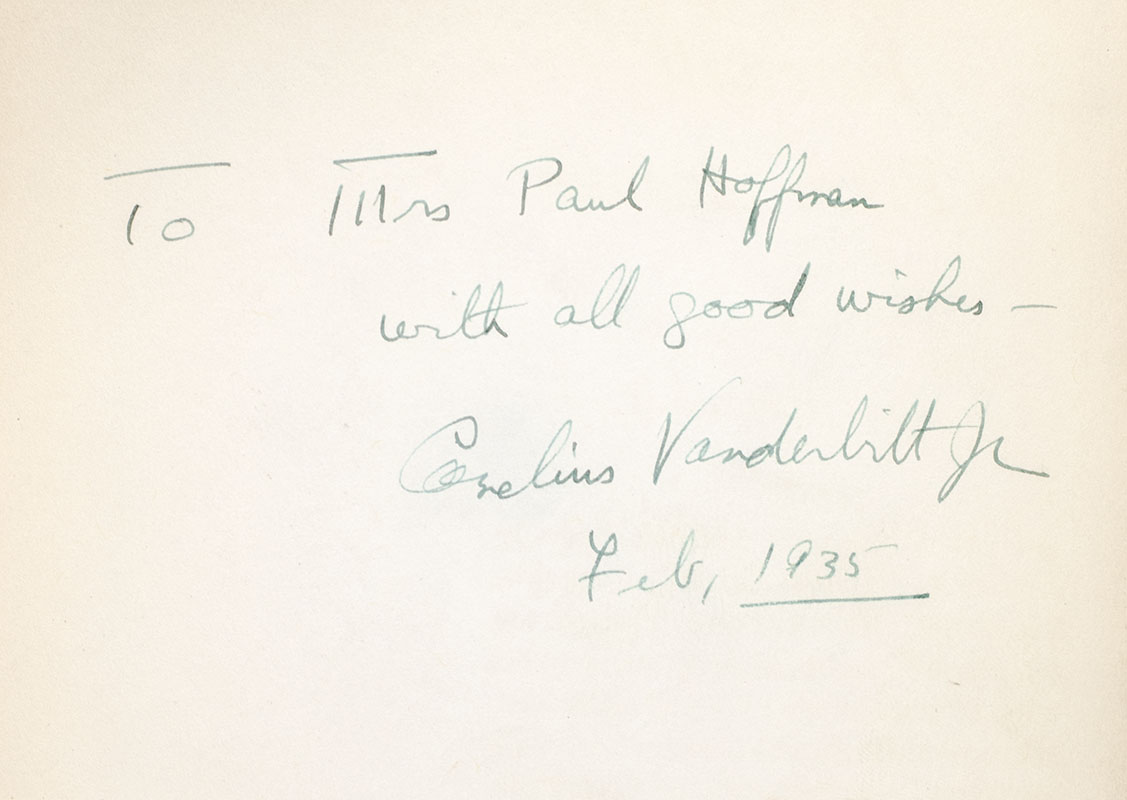 To Mrs Paul Hoffman
with all good wishes —
Cornelius Vanderbilt Jr
Feb, 1935